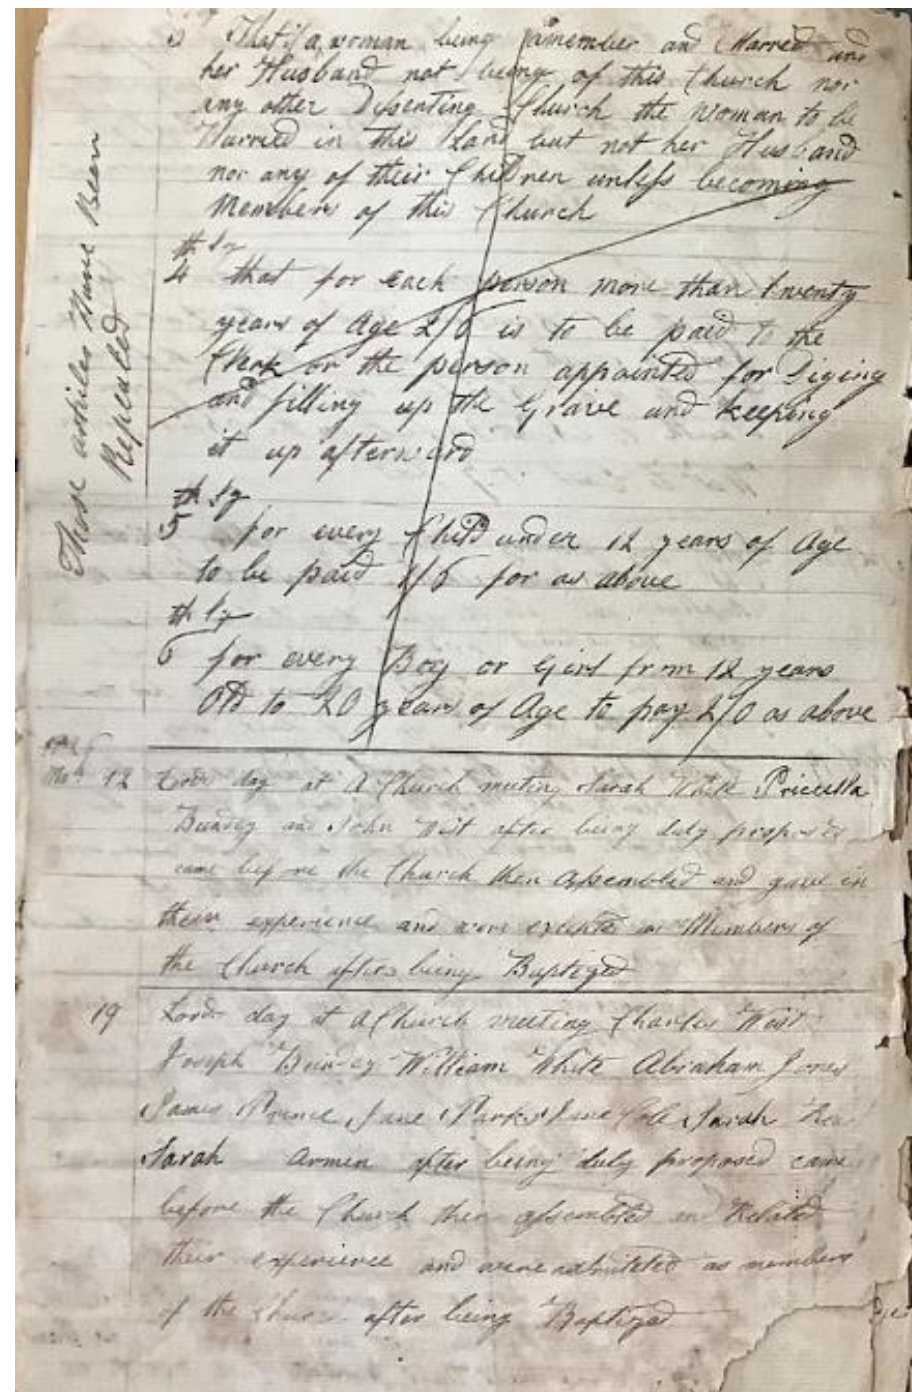 3 That if a woman being a member and Marred and
her Husband not being of this Church nor
any other Disenting Church the woman to be
Burried in this Land but not her Husband
nor any of their Children unless becoming
Members of this Church
4 that for each person more than twenty
years of Age 2/6 is to be paid to the
Clerk or the person appointed for Diging
and filling up the Grave and keeping
it up afterward
5 for every Child under 12 years of Age
to be paid 1/6 for as above
6 for every Boy or Girl frm 12 years
Old to 20 years of Age to pay 2/0 as above
These articles Have Been
Repealed
12 Lords day at A Church meeting Sarah White Pricilla
Bundey and John West after being duly proposed
came before the Church then assembled and gave in
their experience and were as Members of
the Church after being Baptized
19 Lords day at A Church meeting Charles West
Joseph Bundey William White Abraham Jones
James Prince Jane Parks Jane Sarah
Sarah Armen after being duly proposed came
before the Church then assembled Related
their experience and were admitted as members
of the Church after being Baptized